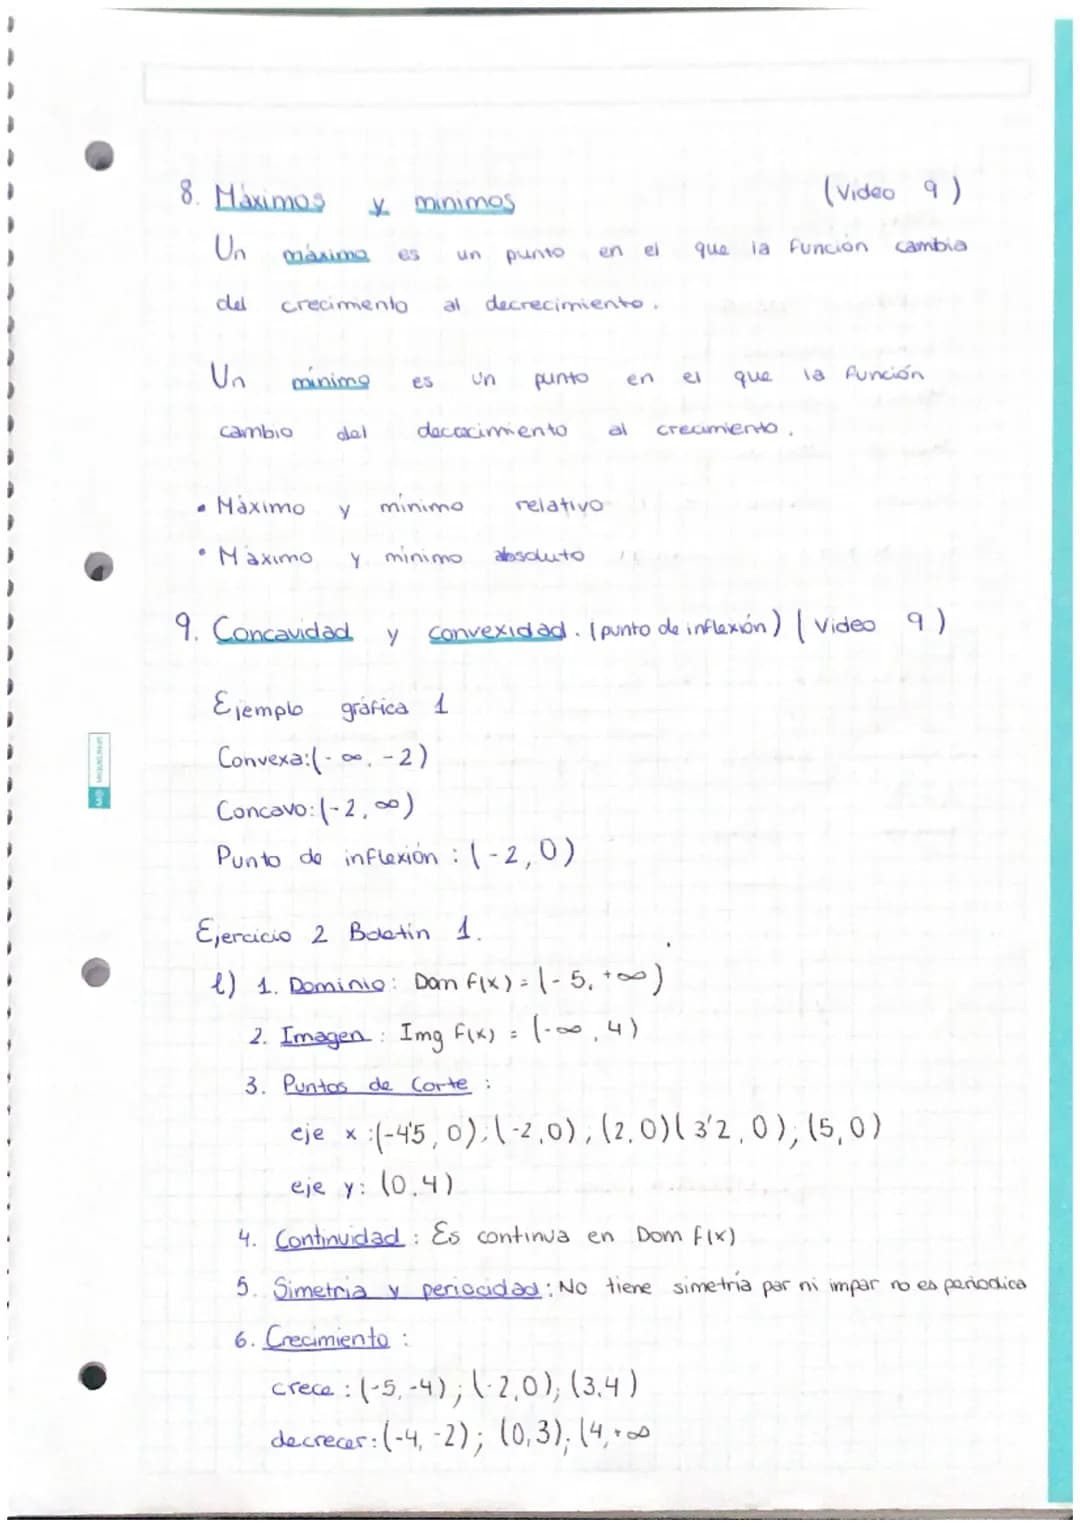 8. Máximos y minimos (Video 9)
Un máximo es un punto en el que la función cambia
del crecimiento al decrecimiento.
Un mínimo es un punto en el que la función
cambio del dececimiento al crecimiento.
• Máximo y mínimo relativo
• Máximo y mínimo absoluto
9. Concavidad y convexidad. (punto de inflexión) (Video 9)
Ejemplo gráfica 1
Convexa: (-∞, -2)
Concavo: (-2, ∞)
Punto de inflexión : (-2, 0)
Ejercicio 2 Boletín 1.
l) 1. Dominio: Dom f(x) = (-5, +∞)
2. Imagen : Img f(x) = (-∞, 4)
3. Puntos de Corte :
eje x :(-4'5, 0); (-2,0); (2,0)(3'2, 0); (5,0)
eje y: (0,4)
4. Continuidad : Es continua en Dom f(x)
5. Simetria y periocidad: No tiene simetría par ni impar no es periodica
6. Crecimiento :
crece : (-5,-4); (-2,0); (3,4)
decrecer: (-4, -2); (0,3); (4,+∞
MIQUELRIUS